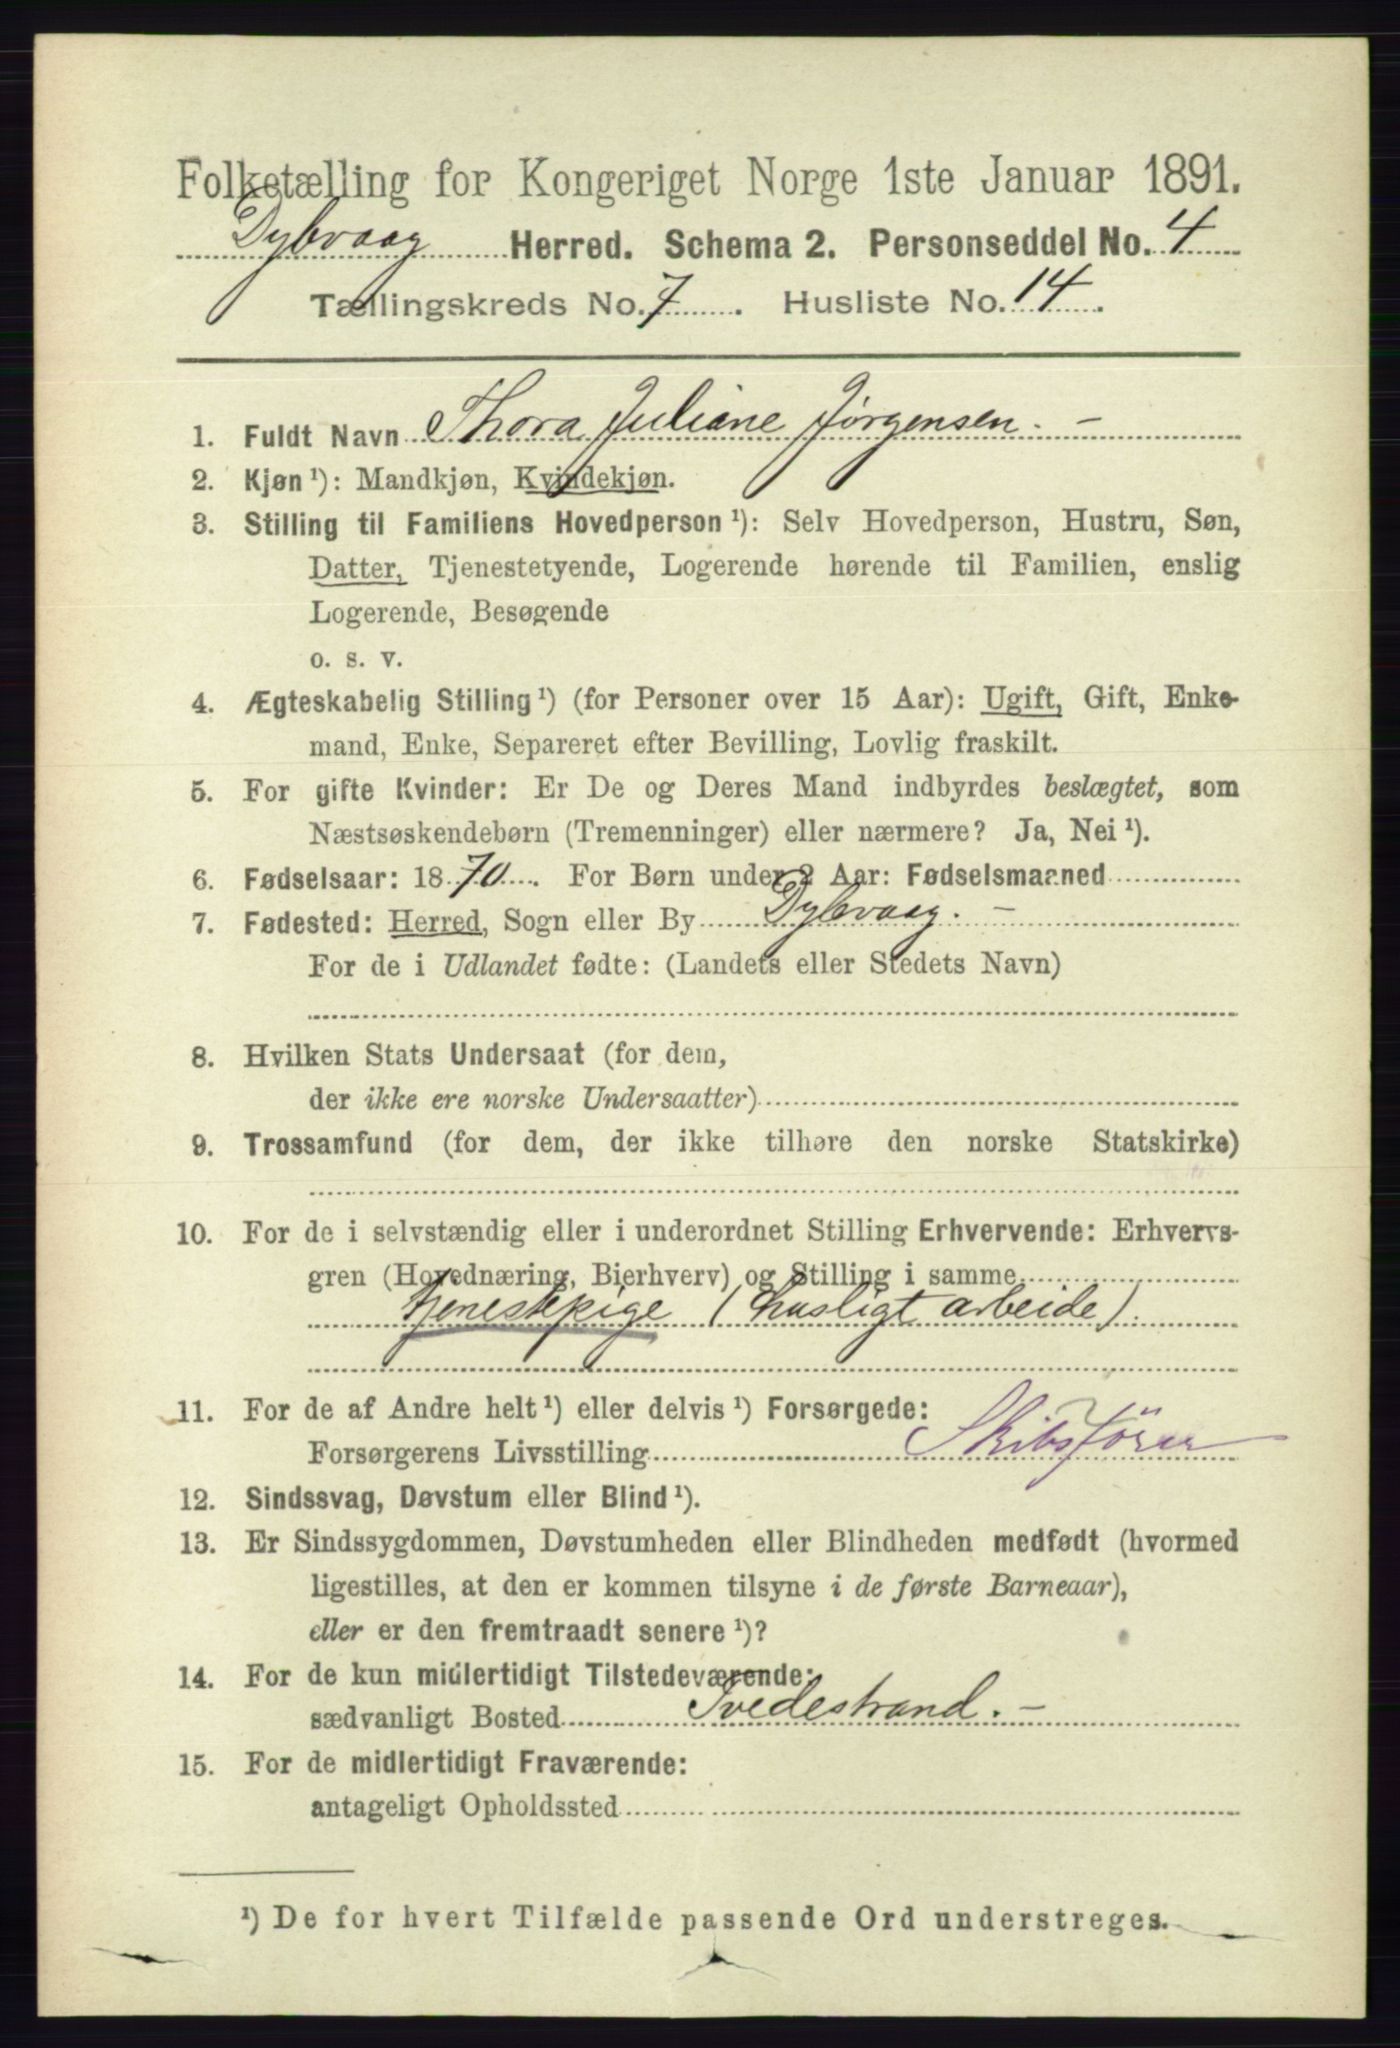 Folketælling for Kongeriget Norge 1ste Januar 1891.
Dybvaag Herred. Schema 2. Personseddel No. 4
Tællingskreds No. 7. Husliste No. 14.
1. Fuldt Navn Thora Juliane Jørgensen. –
2. Kjøn ¹): Mandkjøn, Kvindekjøn.
3. Stilling til Familiens Hovedperson ¹): Selv Hovedperson, Hustru, Søn,
Datter, Tjenestetyende, Logerende hørende til Familien, enslig
Logerende, Besøgende
o. s. v.
4. Ægteskabelig Stilling ¹) (for Personer over 15 Aar): Ugift, Gift, Enke-
mand, Enke, Separeret efter Bevilling, Lovlig fraskilt.
5. For gifte Kvinder: Er De og Deres Mand indbyrdes beslægtet, som
Næstsøskendebørn (Tremenninger) eller nærmere? Ja, Nei ¹).
6. Fødselsaar: 1870. For Børn under 2 Aar: Fødselsmaaned
7. Fødested: Herred, Sogn eller By Dybvaag. –
For de i Udlandet fødte: (Landets eller Stedets Navn)
8. Hvilken Stats Undersaat (for dem,
der ikke ere norske Undersaatter)
9. Trossamfund (for dem, der ikke tilhøre den norske Statskirke)
10. For de i selvstændig eller i underordnet Stilling Erhvervende: Erhvervs-
gren (Hovednæring, Bierhverv) og Stilling i samme
tjenestepige (husligt arbeide).
11. For de af Andre helt ¹) eller delvis ¹) Forsørgede:
Forsørgerens Livsstilling Skibsförer
12. Sindssvag, Døvstum eller Blind ¹).
13. Er Sindssygdommen, Døvstumheden eller Blindheden medfødt (hvormed
ligestilles, at den er kommen tilsyne i de første Barneaar),
eller er den fremtraadt senere ¹)?
14. For de kun midlertidigt Tilstedeværende:
sædvanligt Bosted Tvedestrand. –
15. For de midlertidigt Fraværende:
antageligt Opholdssted
¹) De for hvert Tilfælde passende Ord understreges.